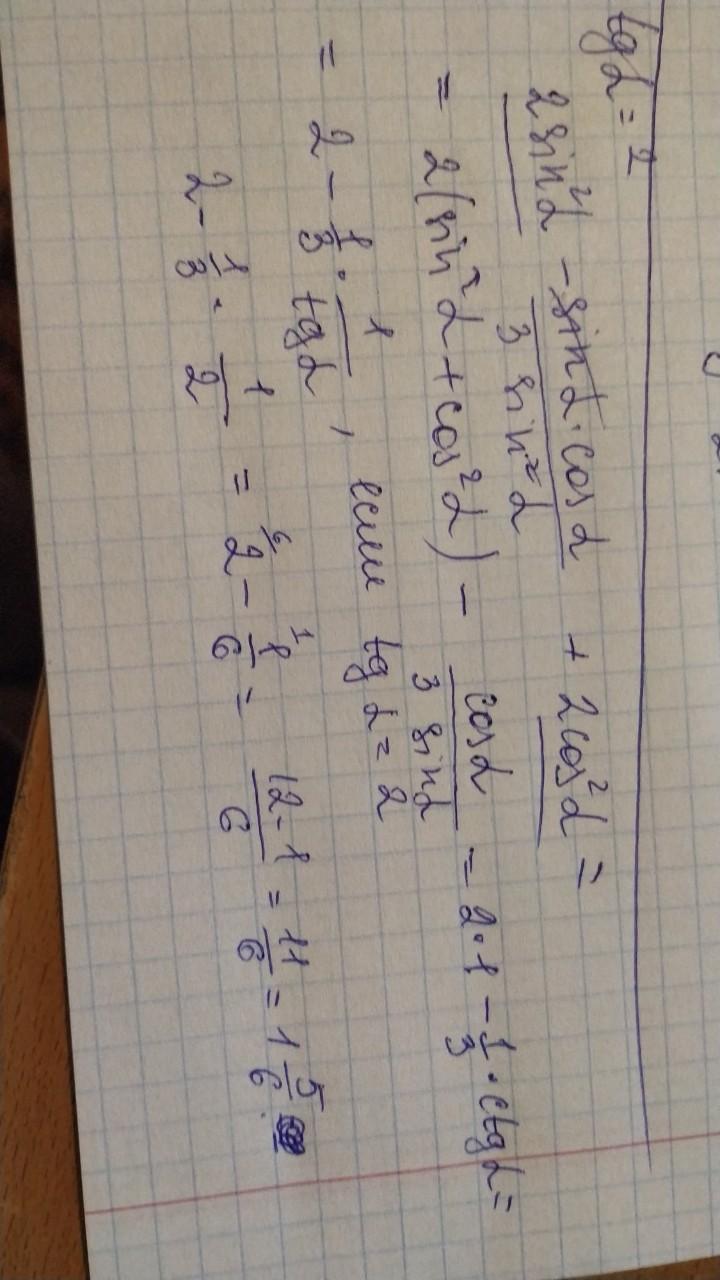 tg α = 2
2 sin²α − (sin α · cos α)/(3 sin²α) + 2cos²α =
= 2(sin²α + cos²α) − cos α/(3 sin α) = 2·1 − 1/3 · ctg α =
= 2 − 1/3 · 1/tg α , если tg α = 2
2 − 1/3 · 1/2 = 2 − 1/6 = (12−1)/6 = 11/6 = 1 5/6